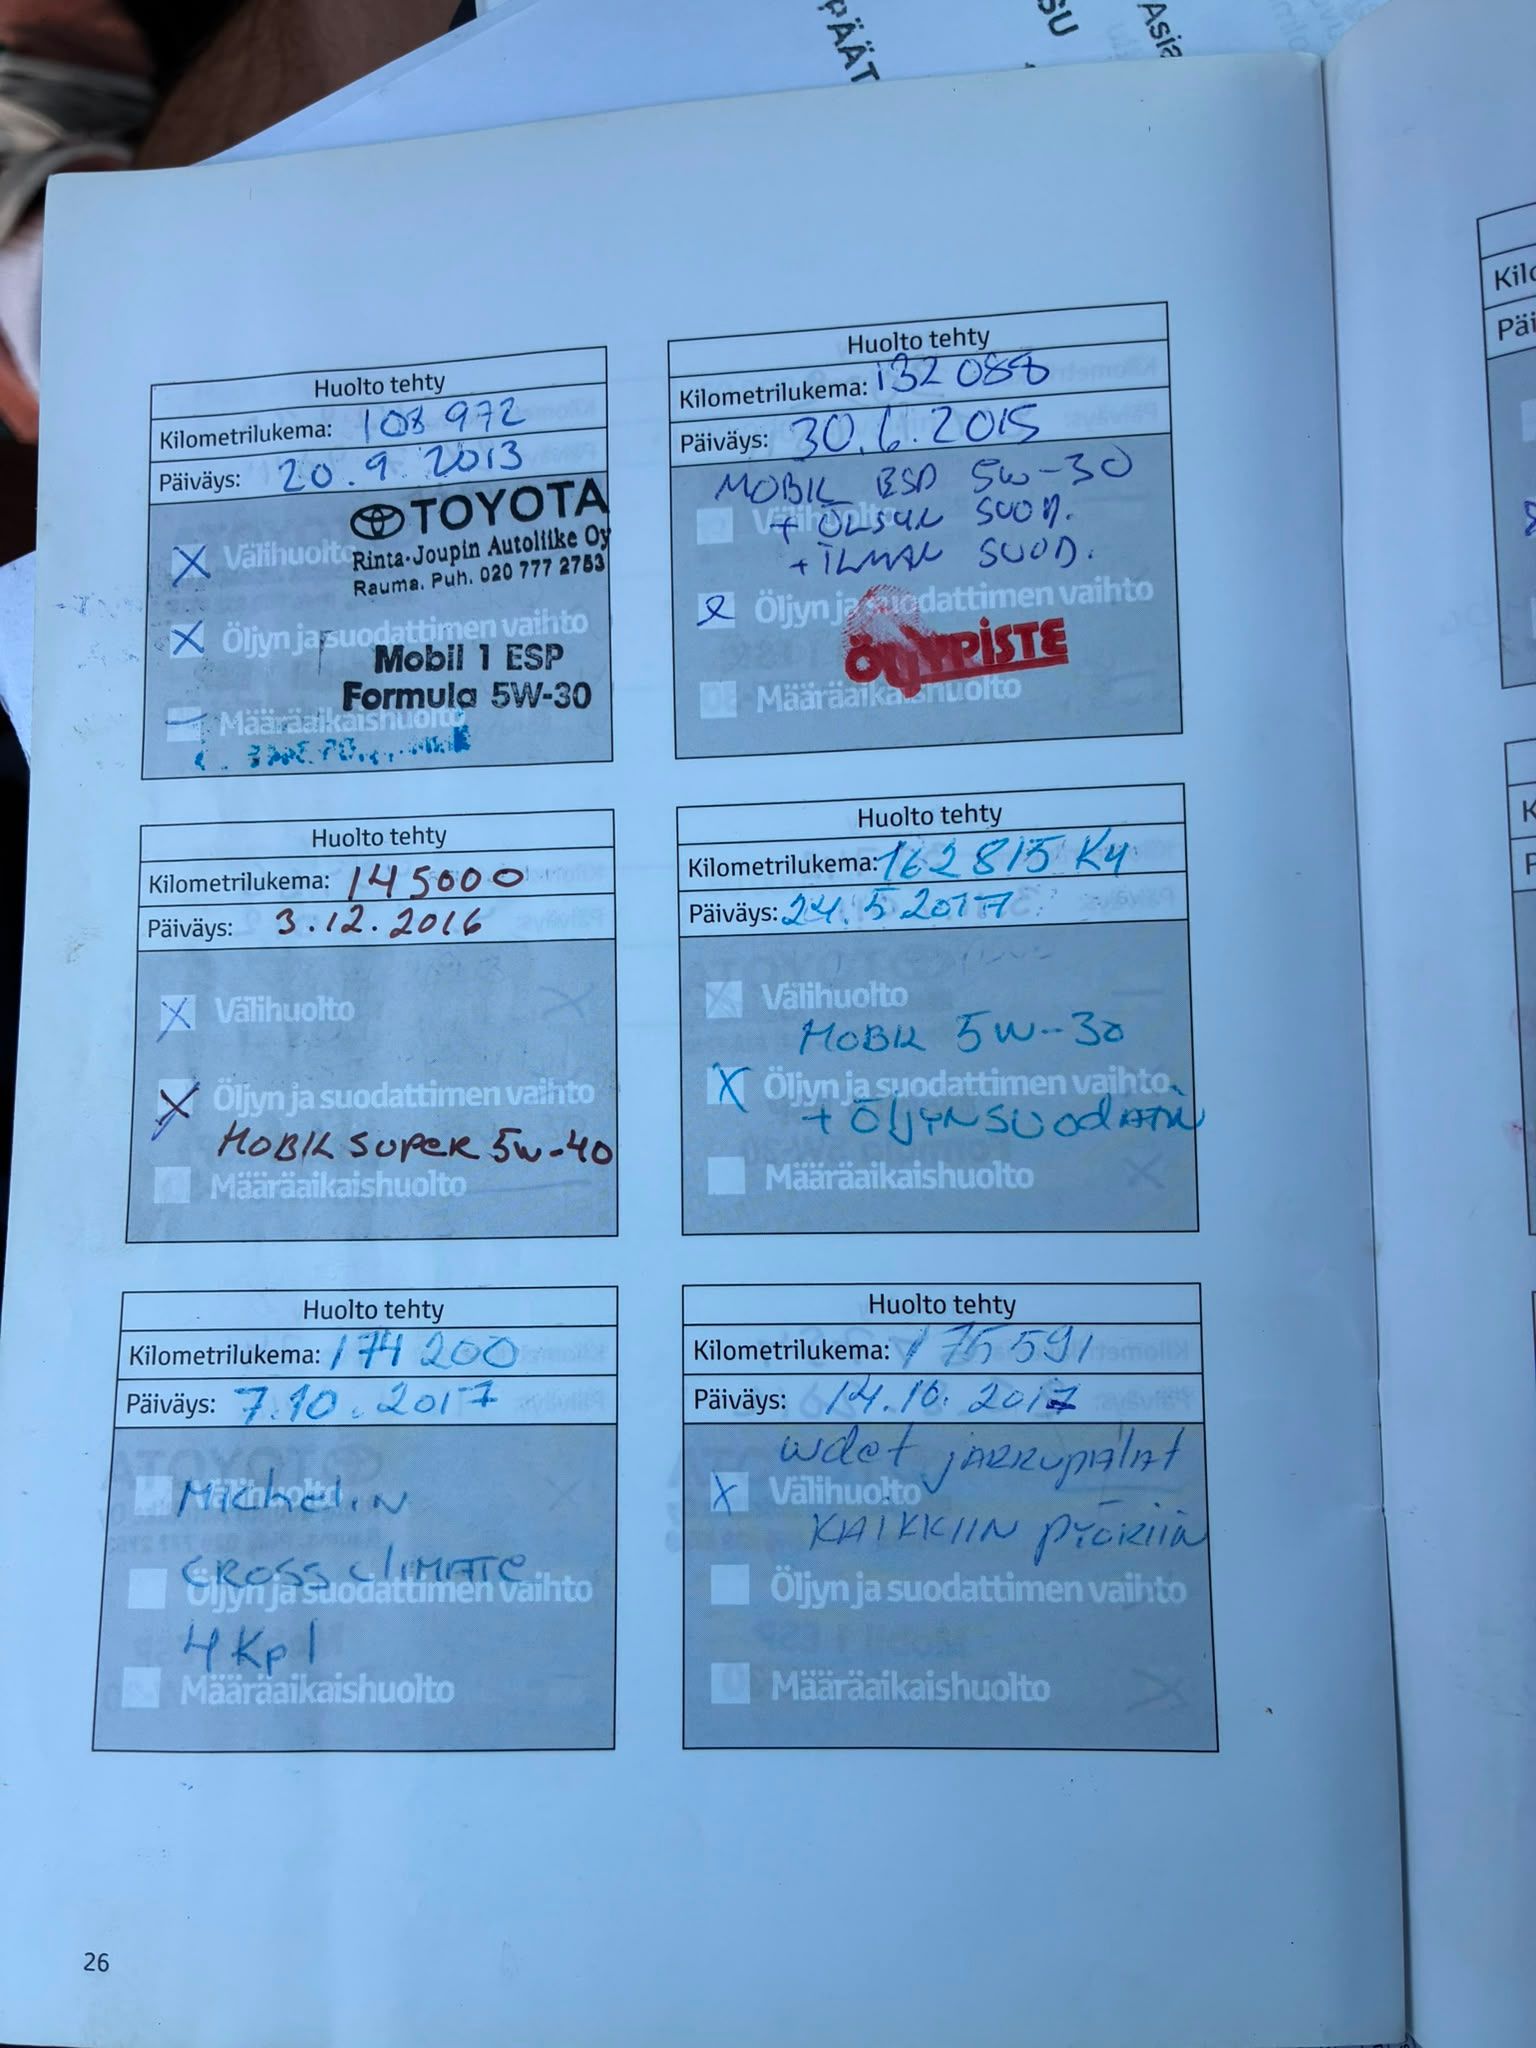 PÄÄT
SU
Asia
Huolto tehty
Kilometrilukema: 108 972
Päiväys: 20.9.2013
TOYOTA
Rinta-Joupin Autoliike Oy
Rauma. Puh. 020 777 2753
X Välihuolto
X Öljyn ja suodattimen vaihto
Mobil 1 ESP
Formula 5W-30
Määräaikaishuolto
Huolto tehty
Kilometrilukema: 132 088
Päiväys: 30.6.2015
MOBIL ESP 5W-30
Välihuolto
+ ÖLJYN SUOD.
+ ILMAN SUOD.
Öljyn ja suodattimen vaihto
ÖLJYPISTE
Määräaikaishuolto
Huolto tehty
Kilometrilukema: 145000
Päiväys: 3.12.2016
X Välihuolto
X Öljyn ja suodattimen vaihto
MOBIL SUPER 5W-40
Määräaikaishuolto
Huolto tehty
Kilometrilukema: 162 815 KM
Päiväys: 24.5 2017
X Välihuolto
MOBIL 5W-30
X Öljyn ja suodattimen vaihto
+ ÖLJYNSUODATIN
Määräaikaishuolto
Huolto tehty
Kilometrilukema: 174 200
Päiväys: 7.10.2017
Välihuolto
MICHELIN
CROSS CLIMATE
Öljyn ja suodattimen vaihto
4 Kpl
Määräaikaishuolto
Huolto tehty
Kilometrilukema: 175 591
Päiväys: 14.10.2017
UUDET JARRUPALAT
X Välihuolto
KAIKKIIN PYÖRIIN
Öljyn ja suodattimen vaihto
Määräaikaishuolto
26
Kilo
Päi
K
P